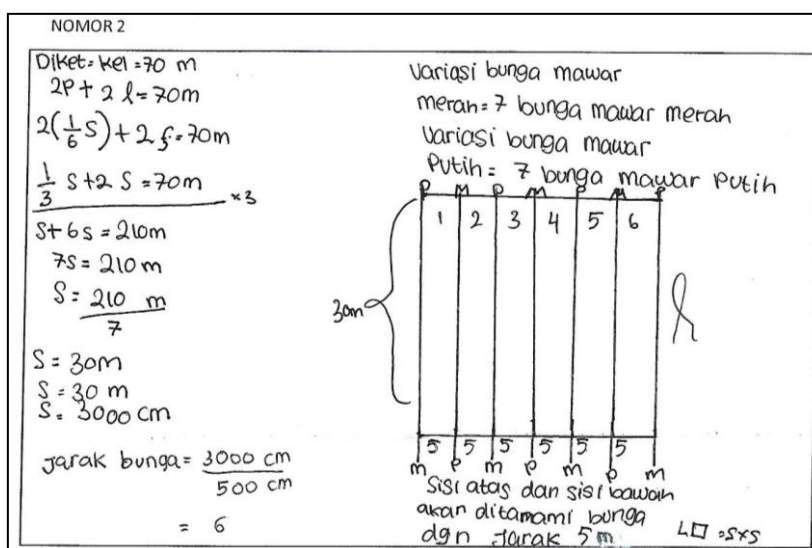 NOMOR 2
Diket = kel = 70 m
2P + 2 l = 70m
2(1/6 S) + 2 S = 70m
1/3 S + 2 S = 70m ×3
S + 6s = 210m
7S = 210 m
S = 210 m / 7
S = 30m
S = 30 m
S = 3000 cm
Jarak bunga = 3000 cm / 500 cm
= 6
Variasi bunga mawar
merah = 7 bunga mawar merah
Variasi bunga mawar
Putih = 7 bunga mawar Putih
P M P M P M P
1 2 3 4 5 6
30m
5 5 5 5 5 5
m P m P m P m
Sisi atas dan sisi bawah
akan ditamami bunga
dgn Jarak 5 m
L□ = s×s